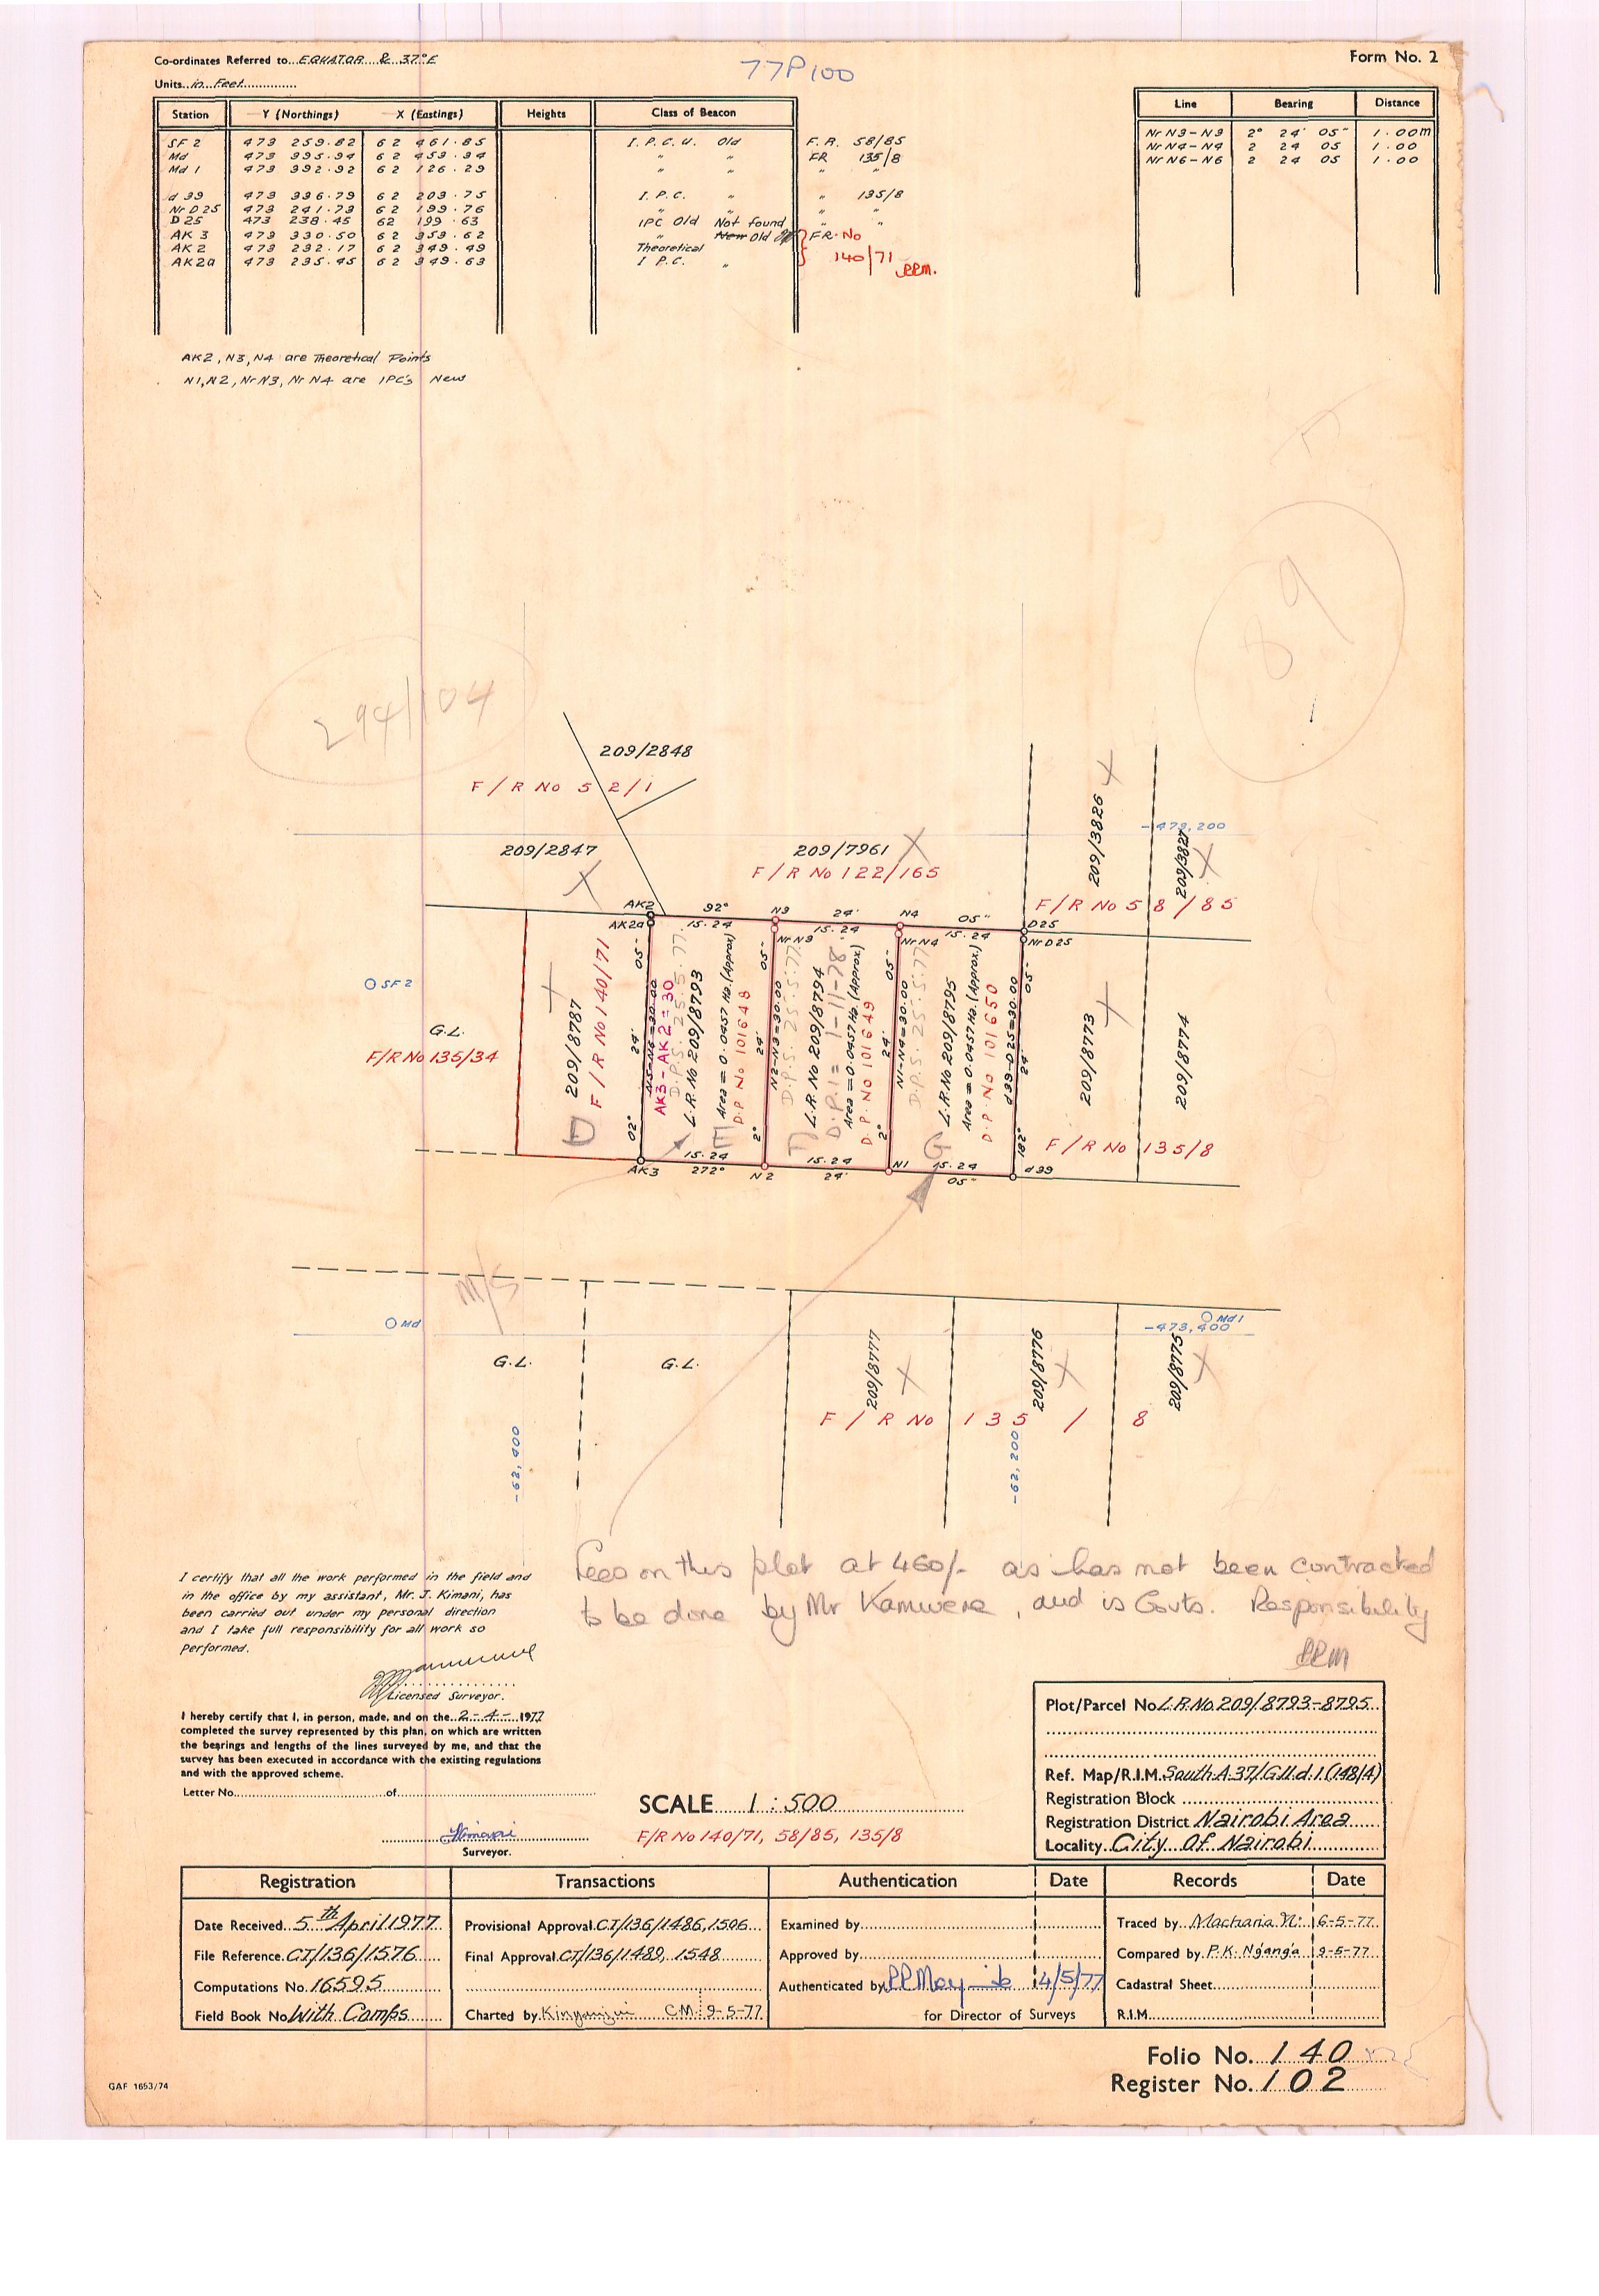 Co-ordinates Referred to EQUATOR & 37°E
Units in Feet
77P100
Form No. 2
Station Y (Northings) X (Eastings) Heights Class of Beacon
SF 2 473 259.82 62 461.85 I.P.C.U. Old F.R. 58/85
Md 473 395.94 62 453.94 " " FR 135/8
Md 1 473 392.92 62 126.29 " " " "
d 39 473 336.79 62 203.75 I.P.C. " " 135/8
Nr D25 473 241.73 62 199.76 " " " "
D 25 473 238.45 62 199.63 IPC Old Not found " "
AK 3 473 330.50 62 353.62 " New Old FR. No
AK 2 473 232.17 62 349.49 Theoretical
AK2a 473 235.45 62 349.63 I P.C. " 140/71 RRM.
Line Bearing Distance
Nr N3-N3 2° 24' 05" 1.00m
Nr N4-N4 2 24 05 1.00
Nr N6-N6 2 24 05 1.00
AK2, N3, N4 are Theoretical Points
N1, N2, Nr N3, Nr N4 are IPC's New
89
294/104
209/2848
F/R No 52/1
209/2847
209/7961
F/R No 122/165
209/3826
-473,200
209/3827
F/R No 58/85
AK2 92° N3 24' N4 05" D25
AK2a 15.24 Nr N3 15.24 Nr N4 15.24 Nr D25
SF 2
G.L.
F/R No 135/34
209/8787
F/R No 140/71
D
02° 24' 05"
N5-N6=30.00
AK3-AK2=30
D.P.S. 25.5.77
L.R. No 209/8793
Area = 0.0457 Ha. (Approx)
D.P. No 101648
E
2° 24' 05"
N2-N3=30.00
D.P.S. 25.5.77
L.R. No 209/8794
D.P.1= 1-11-78
Area = 0.0457 Ha. (Approx)
D.P. No 101649
F
2° 24' 05"
N1-N4=30.00
D.P.S. 25.5.77
L.R. No 209/8795
Area = 0.0457 Ha. (Approx)
D.P. No 101650
G
d39-D25=30.00
182° 24' 05"
209/8773
209/8774
F/R No 135/8
AK3 15.24 N2 15.24 N1 15.24 d39
272° 24' 05"
M/S
Md
Md 1
-473,400
G.L.
G.L.
209/8777
209/8776
209/8775
F/R No 135/8
-62,400
-62,200
Fees on this plot at 460/- as has not been contracted
to be done by Mr Kamwere, and is Govts. Responsibility
RRM
I certify that all the work performed in the field and
in the office by my assistant, Mr. J. Kimani, has
been carried out under my personal direction
and I take full responsibility for all work so
performed.
Licensed Surveyor.
I hereby certify that I, in person, made, and on the 2-4-1977
completed the survey represented by this plan, on which are written
the bearings and lengths of the lines surveyed by me, and that the
survey has been executed in accordance with the existing regulations
and with the approved scheme.
Letter No. of
Kimani
Surveyor.
SCALE 1:500
F/R No 140/71, 58/85, 135/8
Plot/Parcel No. L.R. No. 209/8793-8795
Ref. Map/R.I.M. South A 37/G.11.d.1 (148/4)
Registration Block
Registration District Nairobi Area
Locality City Of Nairobi
Registration Transactions Authentication Date Records Date
Date Received 5th April 1977 Provisional Approval CT/136/1486, 1506 Examined by Traced by Macharia N. 6-5-77
File Reference CT/136/1576 Final Approval CT/136/1489, 1548 Approved by Compared by P.K. Ng'ang'a 9-5-77
Computations No. 16595 Authenticated by 4/5/77 Cadastral Sheet
Field Book No. With Comps Charted by C.M. 9-5-77 for Director of Surveys R.I.M.
Folio No. 140
Register No. 102
GAF 1653/74